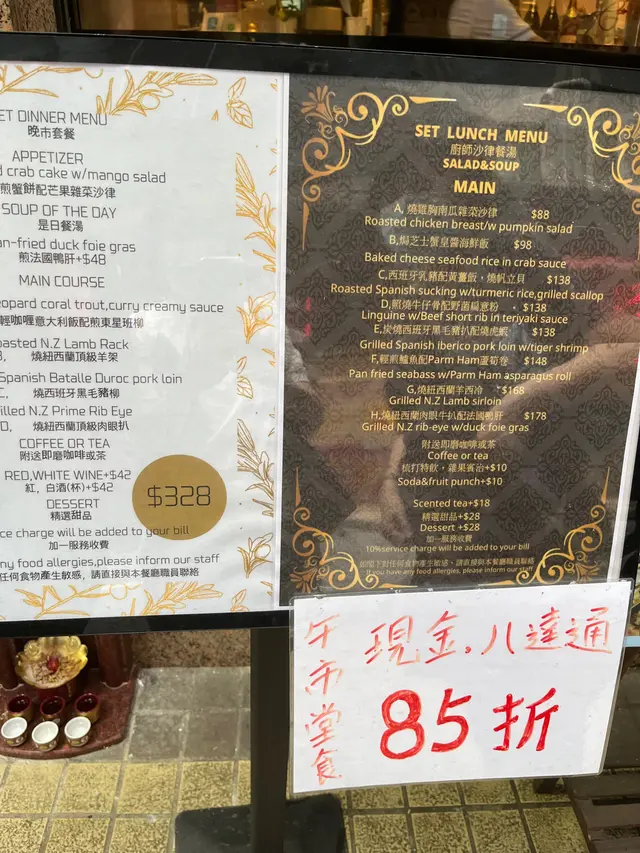 ET DINNER MENU
晚市套餐
APPETIZER
d crab cake w/mango salad
煎蟹餅配芒果雜菜沙律
SOUP OF THE DAY
是日餐湯
an-fried duck foie gras
煎法國鴨肝+$48
MAIN COURSE
eopard coral trout,curry creamy sauce
輕咖喱意大利飯配煎東星班柳
oasted N.Z Lamb Rack
燒紐西蘭頂級羊架
Spanish Batalle Duroc pork loin
燒西班牙黑毛豬柳
illed N.Z Prime Rib Eye
燒紐西蘭頂級肉眼扒
COFFEE OR TEA
附送即磨咖啡或茶
RED,WHITE WINE+$42
紅, 白酒(杯)+$42
DESSERT
精選甜品
$328
ice charge will be added to your bill
加一服務收費
any food allergies,please inform our staff
任何食物產生敏感, 請直接與本餐廳職員聯絡
SET LUNCH MENU
廚師沙律餐湯
SALAD&SOUP
MAIN
A, 燒雞胸南瓜雜菜沙律 $88
Roasted chicken breast/w pumpkin salad
B,焗芝士蟹皇醬海鮮飯 $98
Baked cheese seafood rice in crab sauce
C,西班牙乳豬配黃薑飯，燒帆立貝 $138
Roasted Spanish sucking w/turmeric rice,grilled scallop
D,照燒牛仔骨配野菌扁意粉 $138
Linguine w/Beef short rib in teriyaki sauce
E,炭燒西班牙黑毛豬扒配燒虎蝦 $138
Grilled Spanish Iberico pork loin w/tiger shrimp
F,輕煎鱸魚配Parm Ham蘆筍卷 $148
Pan fried seabass w/Parm Ham asparagus roll
G,燒紐西蘭羊西冷 $168
Grilled N.Z Lamb sirloin
H,燒紐西蘭肉眼牛扒配法國鴨肝 $178
Grilled N.Z rib-eye w/duck foie gras
附送即磨咖啡或茶
Coffee or tea
梳打特飲，雜果賓治+$10
Soda&fruit punch+$10
Scented tea+$18
精選甜品+$28
Dessert +$28
加一服務收費
10%service charge will be added to your bill
如閣下對任何食物產生敏感，請直接與本餐廳職員聯絡
If you have any food allergies, please inform our staff
午市堂食
現金,八達通
85折